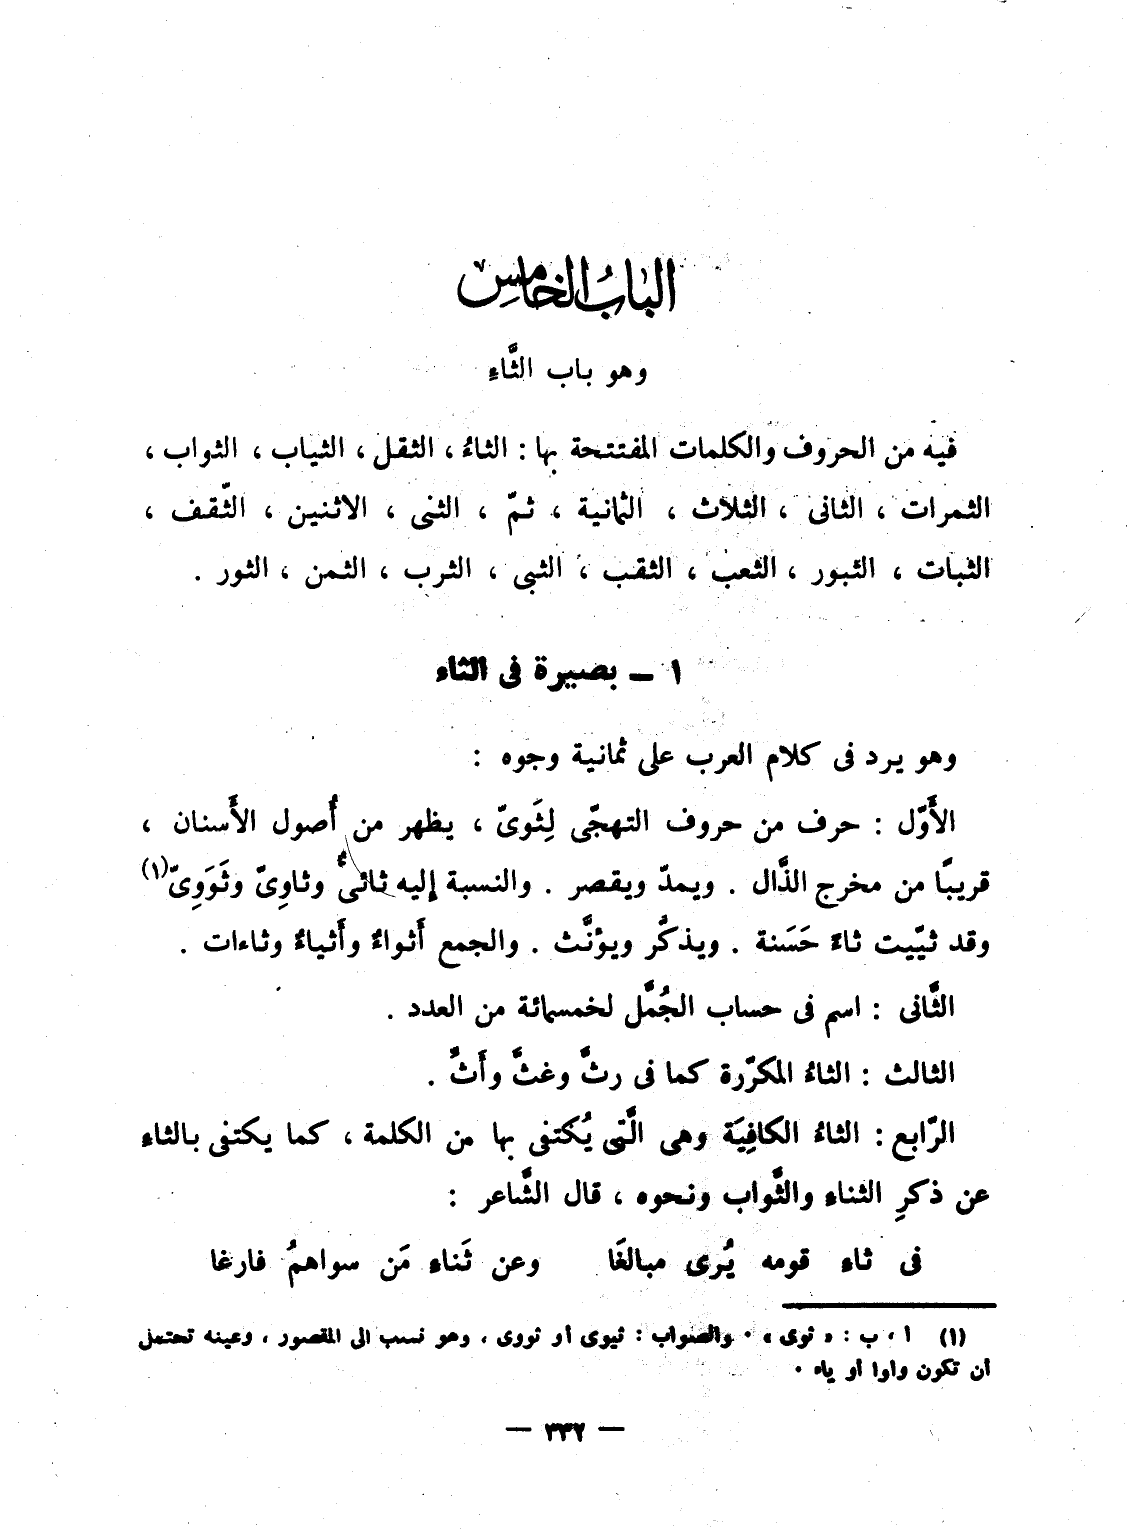 الباب الخامس
وهو باب الثَّاءِ
فيه من الحروف والكلمات المفتتحة بها : الثاءُ ، الثقل ، الثياب ، الثواب ،
الثمرات ، الثانى ، الثلاث ، الثمانية ، ثمّ ، الثنى ، الاثنين ، الثّقف ،
الثبات ، الثبور ، الثعب ، الثقب ، الثبى ، الثرب ، الثمن ، الثور .
١ – بصيرة فى الثاء
وهو يرد فى كلام العرب على ثمانية وجوه :
الأَوّل : حرف من حروف التهجّى لِثَوىّ ، يظهر من أُصول الأَسنان ،
قريبًا من مخرج الذَّال . ويمدّ ويقصر . والنسبة إليه ثائىٌّ وثاوِىّ وثَوَوِىّ(١)
وقد ثيّيت ثاءً حَسَنة . ويذكَّر ويؤنَّث . والجمع أَثواءٌ وأَثياءٌ وثاءات .
الثَّانى : اسم فى حساب الجُمَّل لخمسمائة من العدد .
الثالث : الثاءُ المكرّرة كما فى رثَّ وغثَّ وأَثَّ .
الرّابع : الثاءُ الكافِيَة وهى الَّتى يُكتفى بها من الكلمة ، كما يكتفى بالثاءِ
عن ذكرِ الثناءِ والثَّواب ونحوه ، قال الشَّاعر :
فى ثاءِ قومه يُرى مبالغَا وعن ثَناءِ مَن سواهمُ فارغا
(١) ا ، ب : « ثوى » ٠ والصواب : ثيوى أو ثووى ، وهو نسب الى المقصور ، وعينه تحتمل
أن تكون واوا أو ياء ٠
— ٣٣٢ —